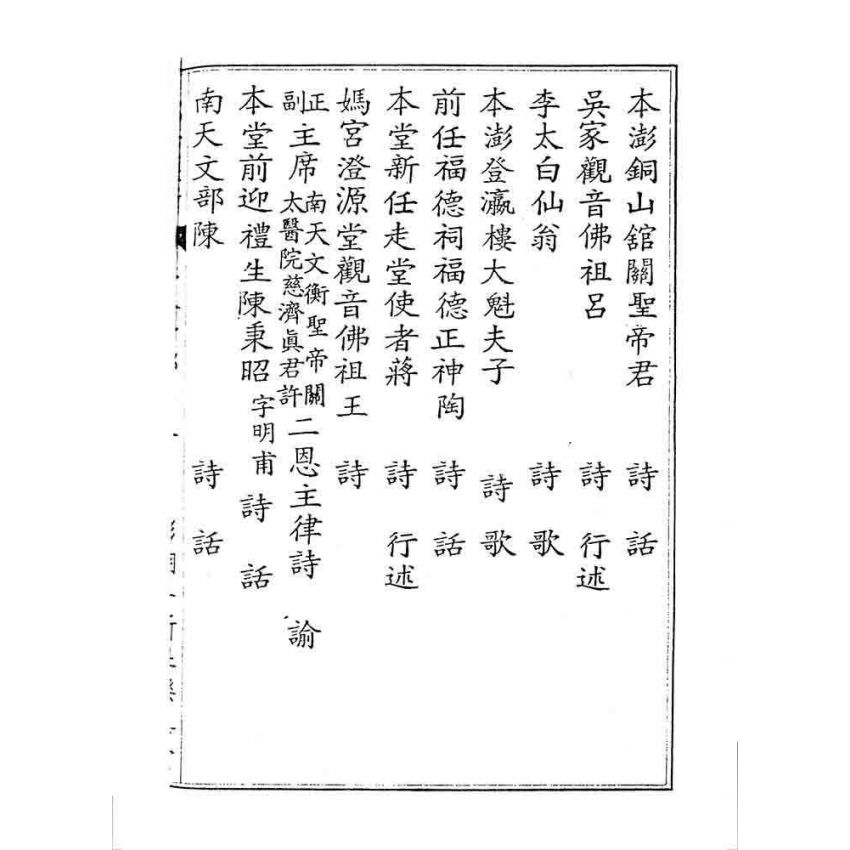 本澎銅山舘關聖帝君 詩 話
吳家觀音佛祖呂 詩 行述
李太白仙翁 詩 歌
本澎登瀛樓大魁夫子 詩 歌
前任福德祠福德正神陶 詩 話
本堂新任走堂使者蔣 詩 行述
媽宮澄源堂觀音佛祖王 詩
正副主席南天文衡聖帝關太醫院慈濟眞君許二恩主律詩 諭
本堂前迎禮生陳秉昭字明甫 詩 話
南天文部陳 詩 話